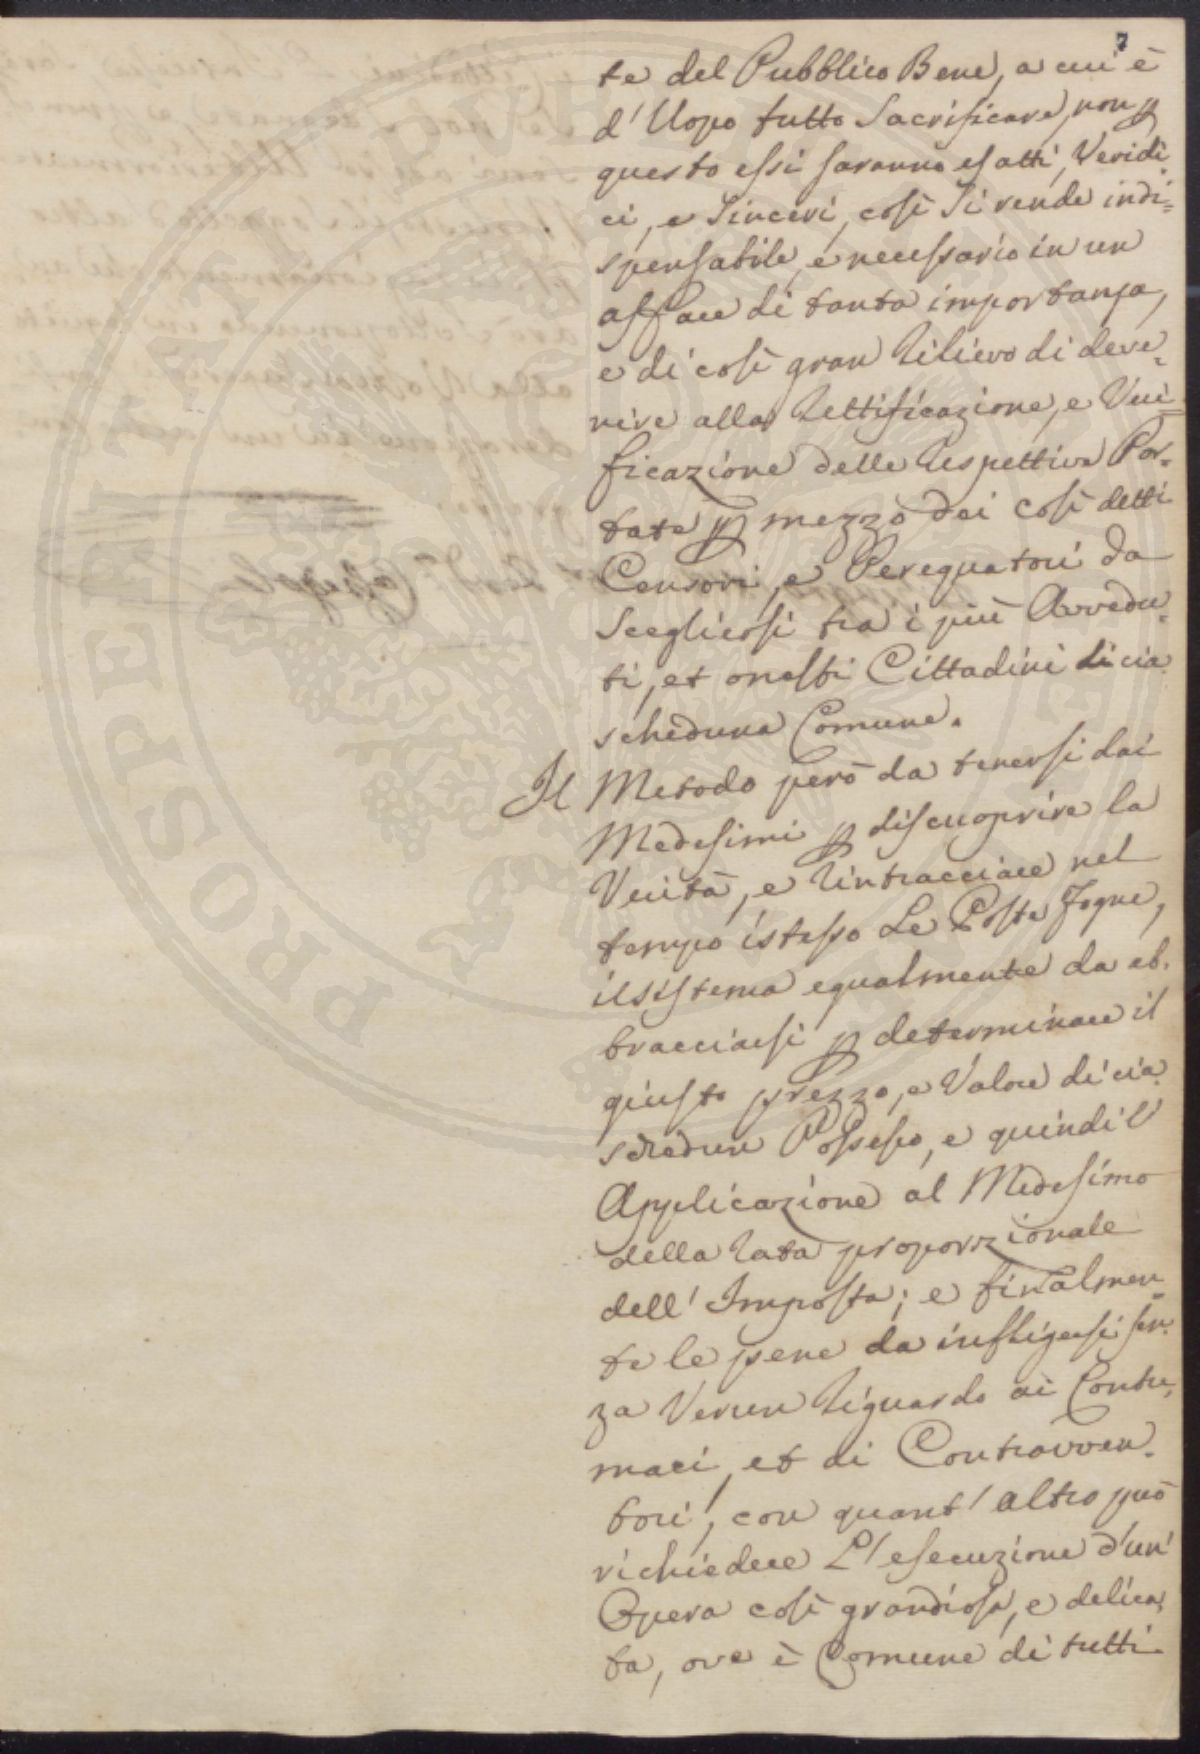 7
te del Pubblico Bene, a cui è
d'Uopo tutto Sacrificare, non p
questo essi saranno esatti, Veridi
ci, e Sinceri, così Si rende indi=
spensabile, e necessario in un
affare di tanta importanza,
e di così gran Rilievo di deve=
nire alla Rettificazione, e Veri=
ficazione delle Respettive Por=
tate p mezzo dei così detti
Censori, e Perequatori da
Scegliersi tra i più Avvedu=
ti, et onesti Cittadini di cia
scheduna Comune.
Il Metodo però da tenersi dai
Medesimi p discuoprire la
Verità, e Rintracciare nel
tempo istesso Le Poste Fogne,
il sistema egualmente da ab=
bracciarsi p determinare il
giusto prezzo, e Valore di cia
schedun Possesso, e quindi l'
Applicazione al Medesimo
della Rata proporzionale
dell'Imposta; e finalmen=
te le pene da infligersi sen=
za Verun Riguardo ai Contu=
maci, et ai Contravven=
tori, con quant'altro può
richiedere L'esecuzione d'un'
Opera così grandiosa, e delica
ta, ove è Comune di tutti
PROSPERITATI PUBLICAE